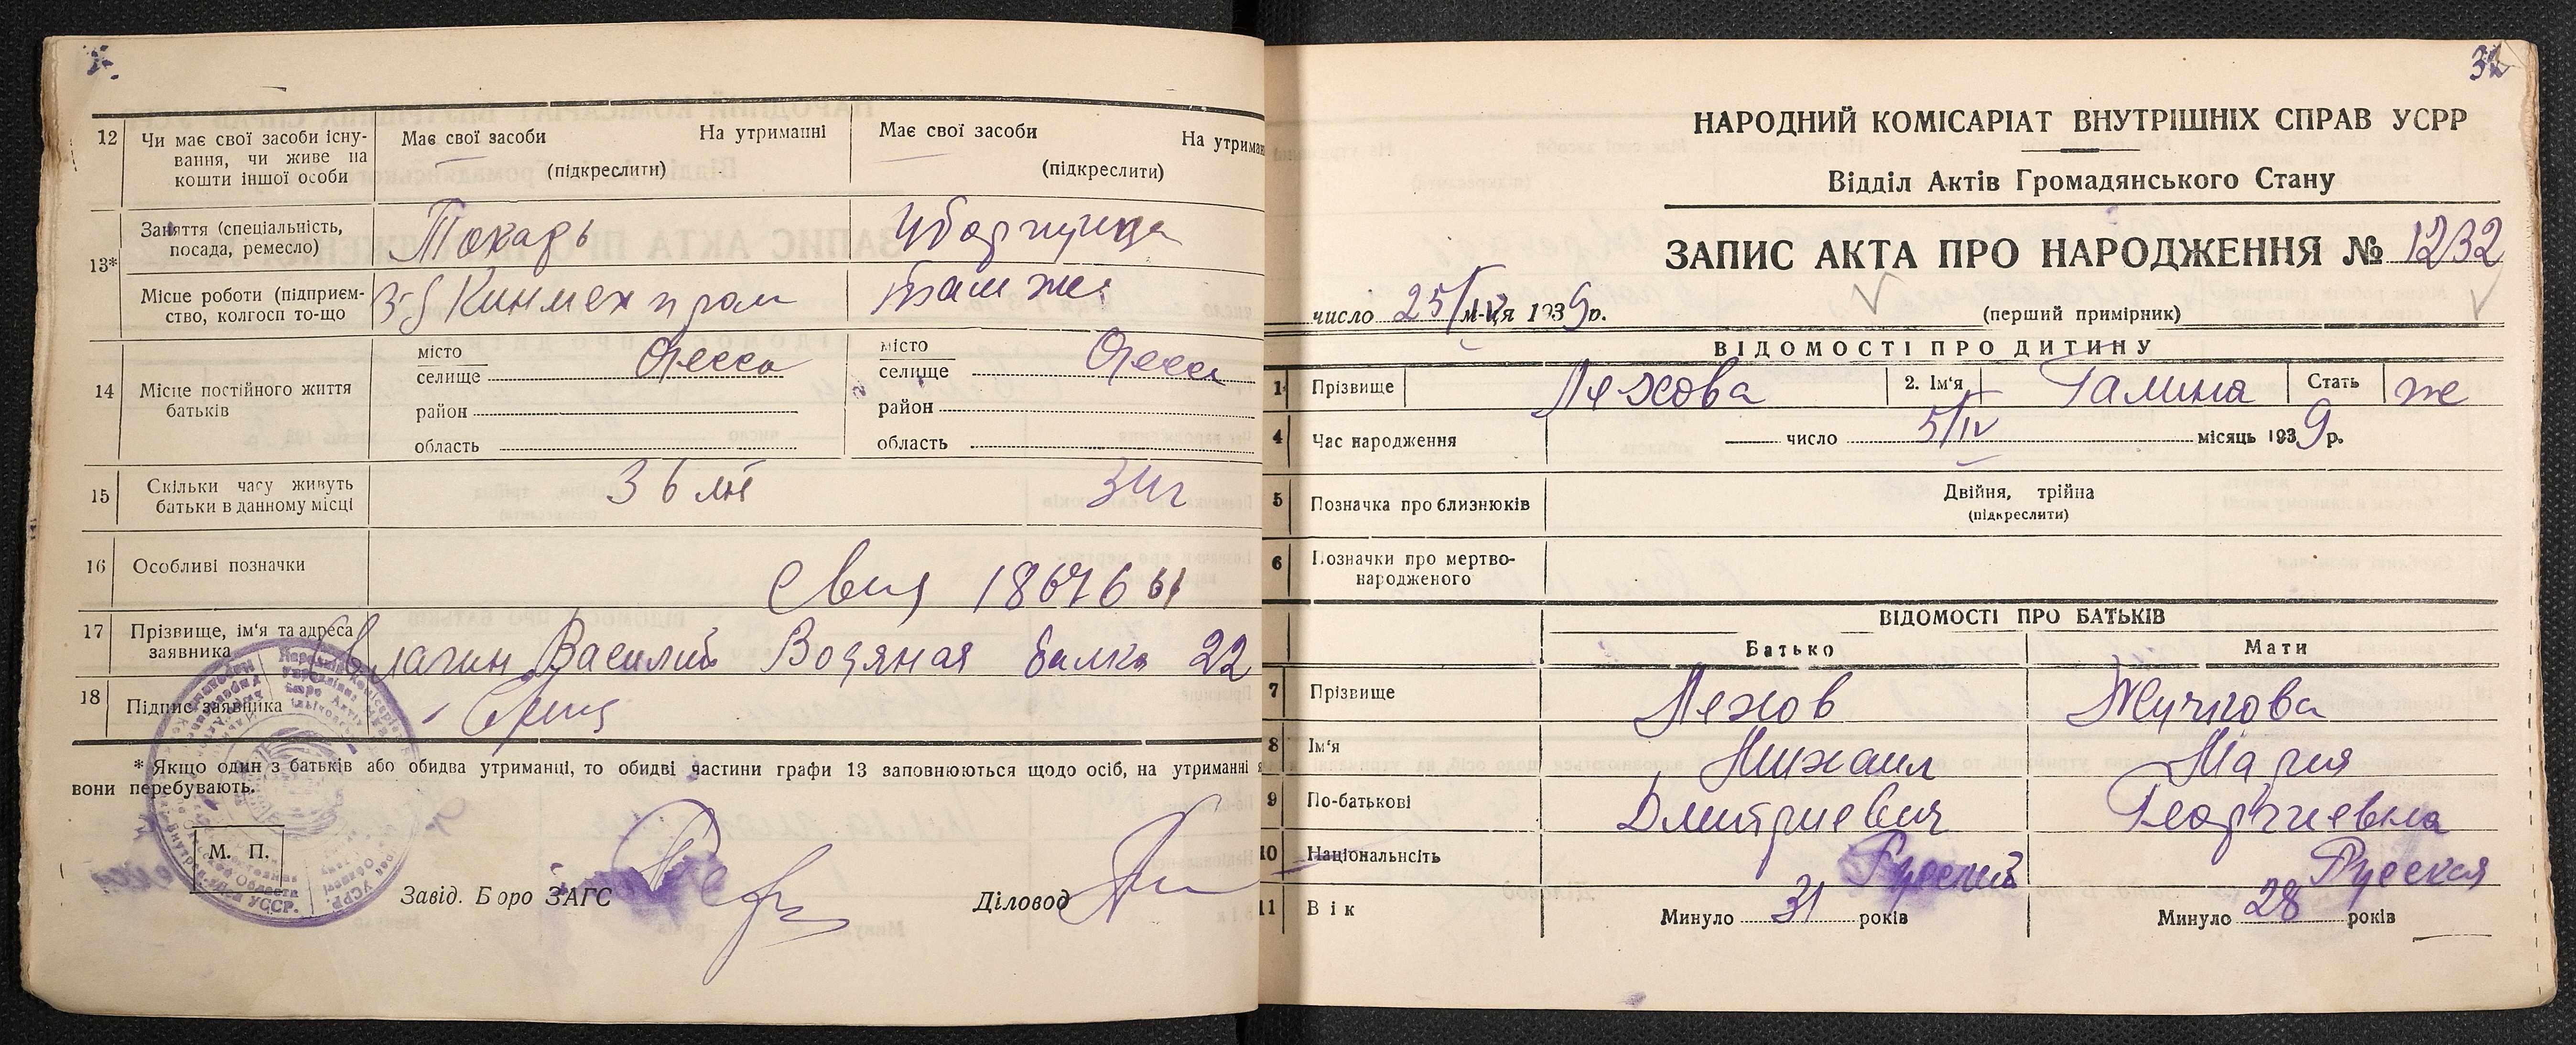 12 Чи має свої засоби існу-
вання, чи живе на
кошти іншої особи
Має свої засоби На утриманні
(підкреслити)
Має свої засоби На утриман
(підкреслити)
13* Заняття (спеціальність,
посада, ремесло)
Токарь
Уборщица
Місце роботи (підприєм-
ство, колгосп то-що
З-д Кинмехпром
там же
14 Місце постійного життя
батьків
місто
селище Одесса
район
область
місто
селище Одесса
район
область
15 Скільки часу живуть
батьки в данному місці
3 г
16 Особливі позначки
17 Прізвище, ім'я та адреса
заявника
Василий Водяная балка 22
18 Підпис заявника
* Якщо один з батьків або обидва утриманці, то обидві частини графи 13 заповнюються щодо осіб, на утриманні я
вони перебувають.
М. П.
Завід. Бюро ЗАГС
Діловод
НАРОДНИЙ КОМІСАРІАТ ВНУТРІШНІХ СПРАВ УСРР
Відділ Актів Громадянського Стану
ЗАПИС АКТА ПРО НАРОДЖЕННЯ № 1232
число 25/IV м-ця 1939 р.
(перший примірник)
ВІДОМОСТІ ПРО ДИТИНУ
1 Прізвище Ляхова 2. Ім'я Галина Стать же
4 Час народження число 5/IV місяць 1939 р.
5 Позначка про близнюків
Двійня, трійна
(підкреслити)
6 Позначки про мертво-
народженого
ВІДОМОСТІ ПРО БАТЬКІВ
Батько Мати
7 Прізвище Ляхов Жучкова
8 Ім'я Михаил Мария
9 По-батькові Дмитриевич Георгиевна
10 Національнсіть Русский Русская
11 Вік Минуло 31 років Минуло 28 років